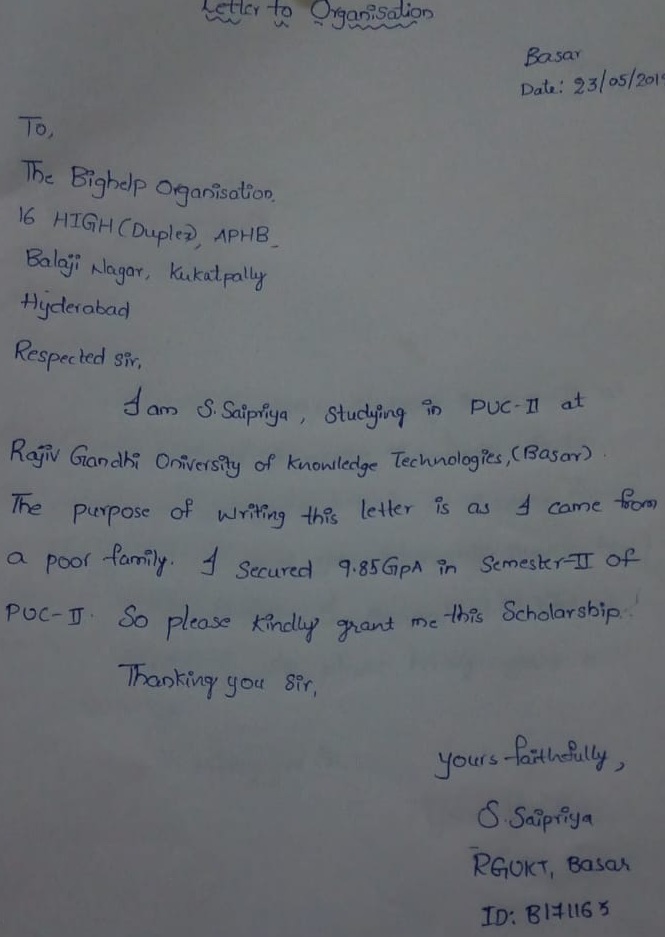 Letter to Organisation
Basar
Date: 23/05/2019
To,
The Bighelp Organisation.
16 HIGH (Duplex), APHB
Balaji Nagar, Kukatpally
Hyderabad
Respected Sir,
I am S. Saipriya, studying in PUC-II at
Rajiv Gandhi University of Knowledge Technologies, (Basar).
The purpose of writing this letter is as I came from
a poor family. I Secured 9.85GPA in Semester-II of
PUC-II. So please kindly grant me this Scholarship.
Thanking you Sir,
yours faithfully,
S. Saipriya
RGUKT, Basar
ID: B171163